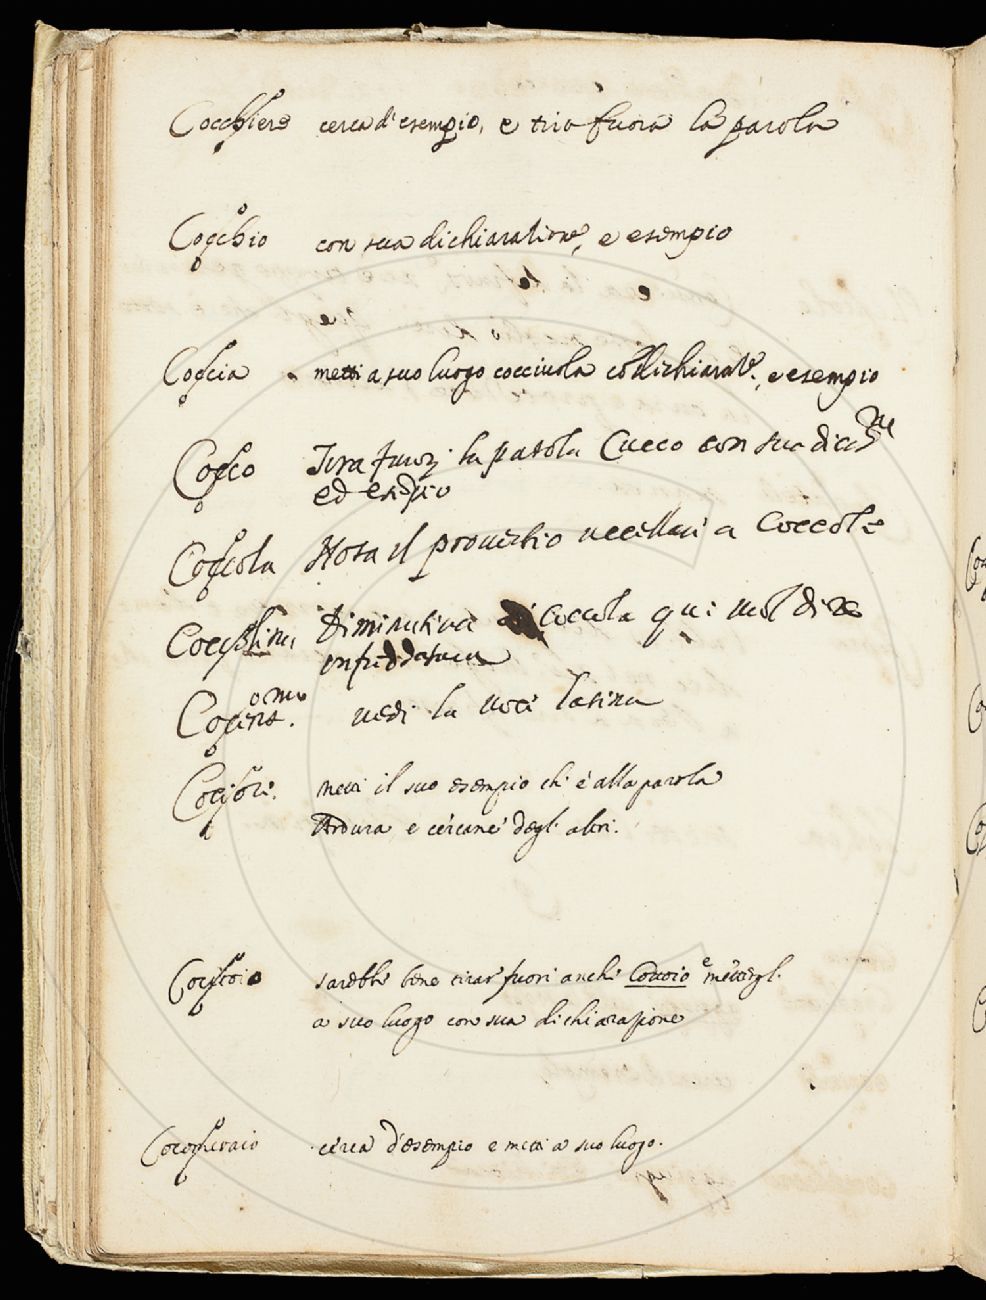 Cocchiere cerca d'esempio, e tira fuora la parola
Cocchio con sua dichiaratione, e esempio
Coccia metti a suo luogo cocciuola co dichiarat.e, e esempio
Cocco Tira fuori la parola Cucco con sua dich.ne
ed esempio
Coccola Nota il proverbio uccellare a Coccole
Coccolina Diminutivo di Coccola qui vuol dire
infreddatura
vedi la voce latina
Cociore. metti il suo esempio ch'è alla parola
Ardura e cercane degl'altri.
sarebbe bene tirar fuori anche Coccoio e mettergl.
a suo luogo con sua dichiarazione
Cocomeraio cerca d'esempio e metti a suo luogo.